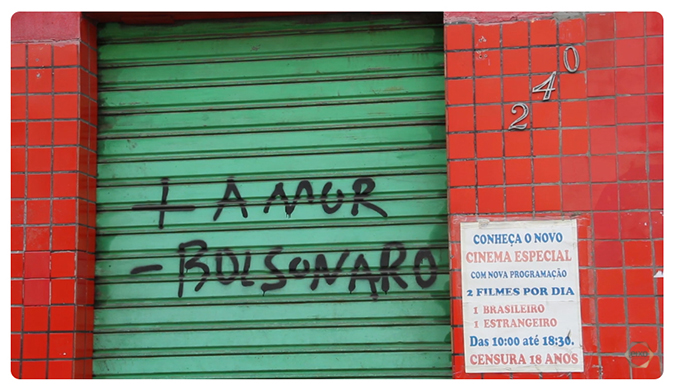 + AMOR
- BOLSONARO
240
CONHEÇA O NOVO
CINEMA ESPECIAL
COM NOVA PROGRAMAÇÃO
2 FILMES POR DIA
1 BRASILEIRO
1 ESTRANGEIRO
Das 10:00 até 18:30.
CENSURA 18 ANOS